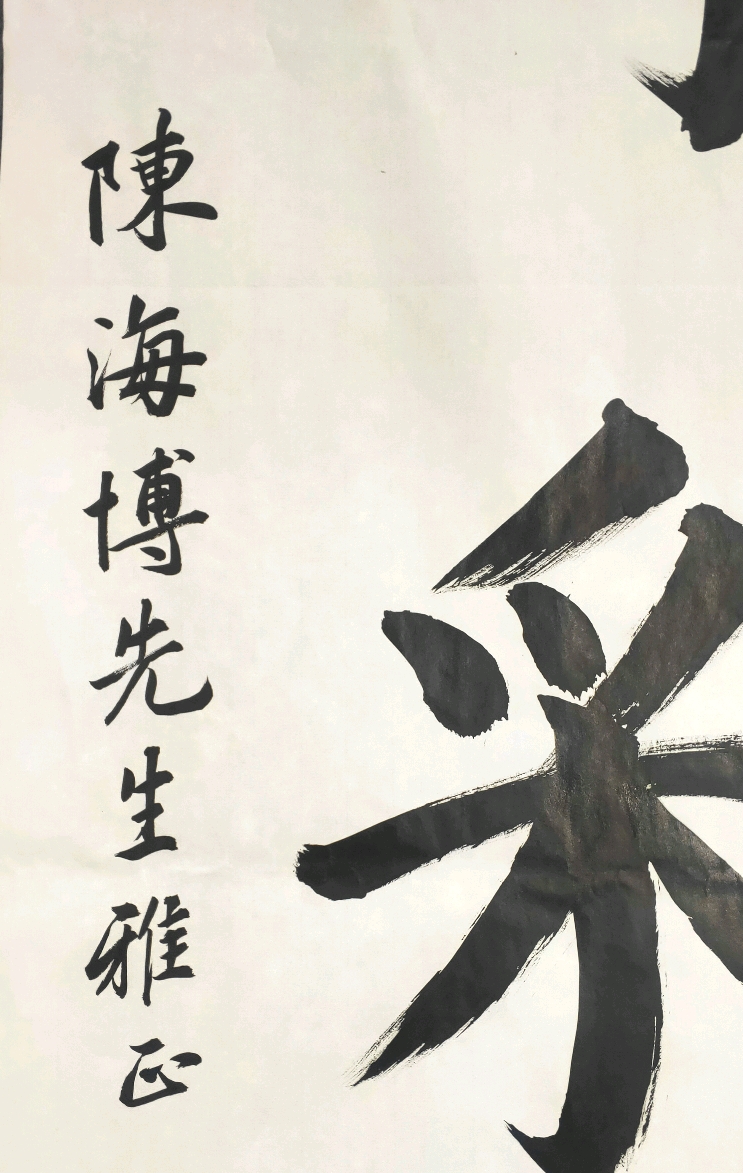 采
陳海博先生雅正